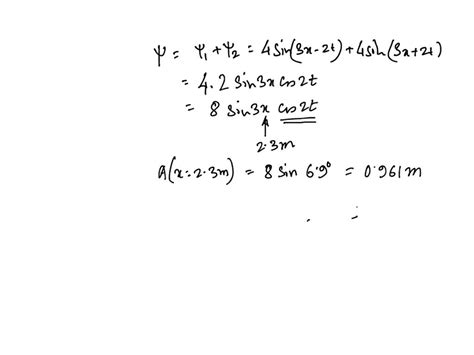 Ψ = Ψ₁ + Ψ₂ = 4 sin(3x-2t) + 4 sin(3x+2t)
= 4.2 sin3x cos2t
= 8 sin3x cos2t
↑
2.3m
A(x=2.3m) = 8 sin 6.9° = 0.961m